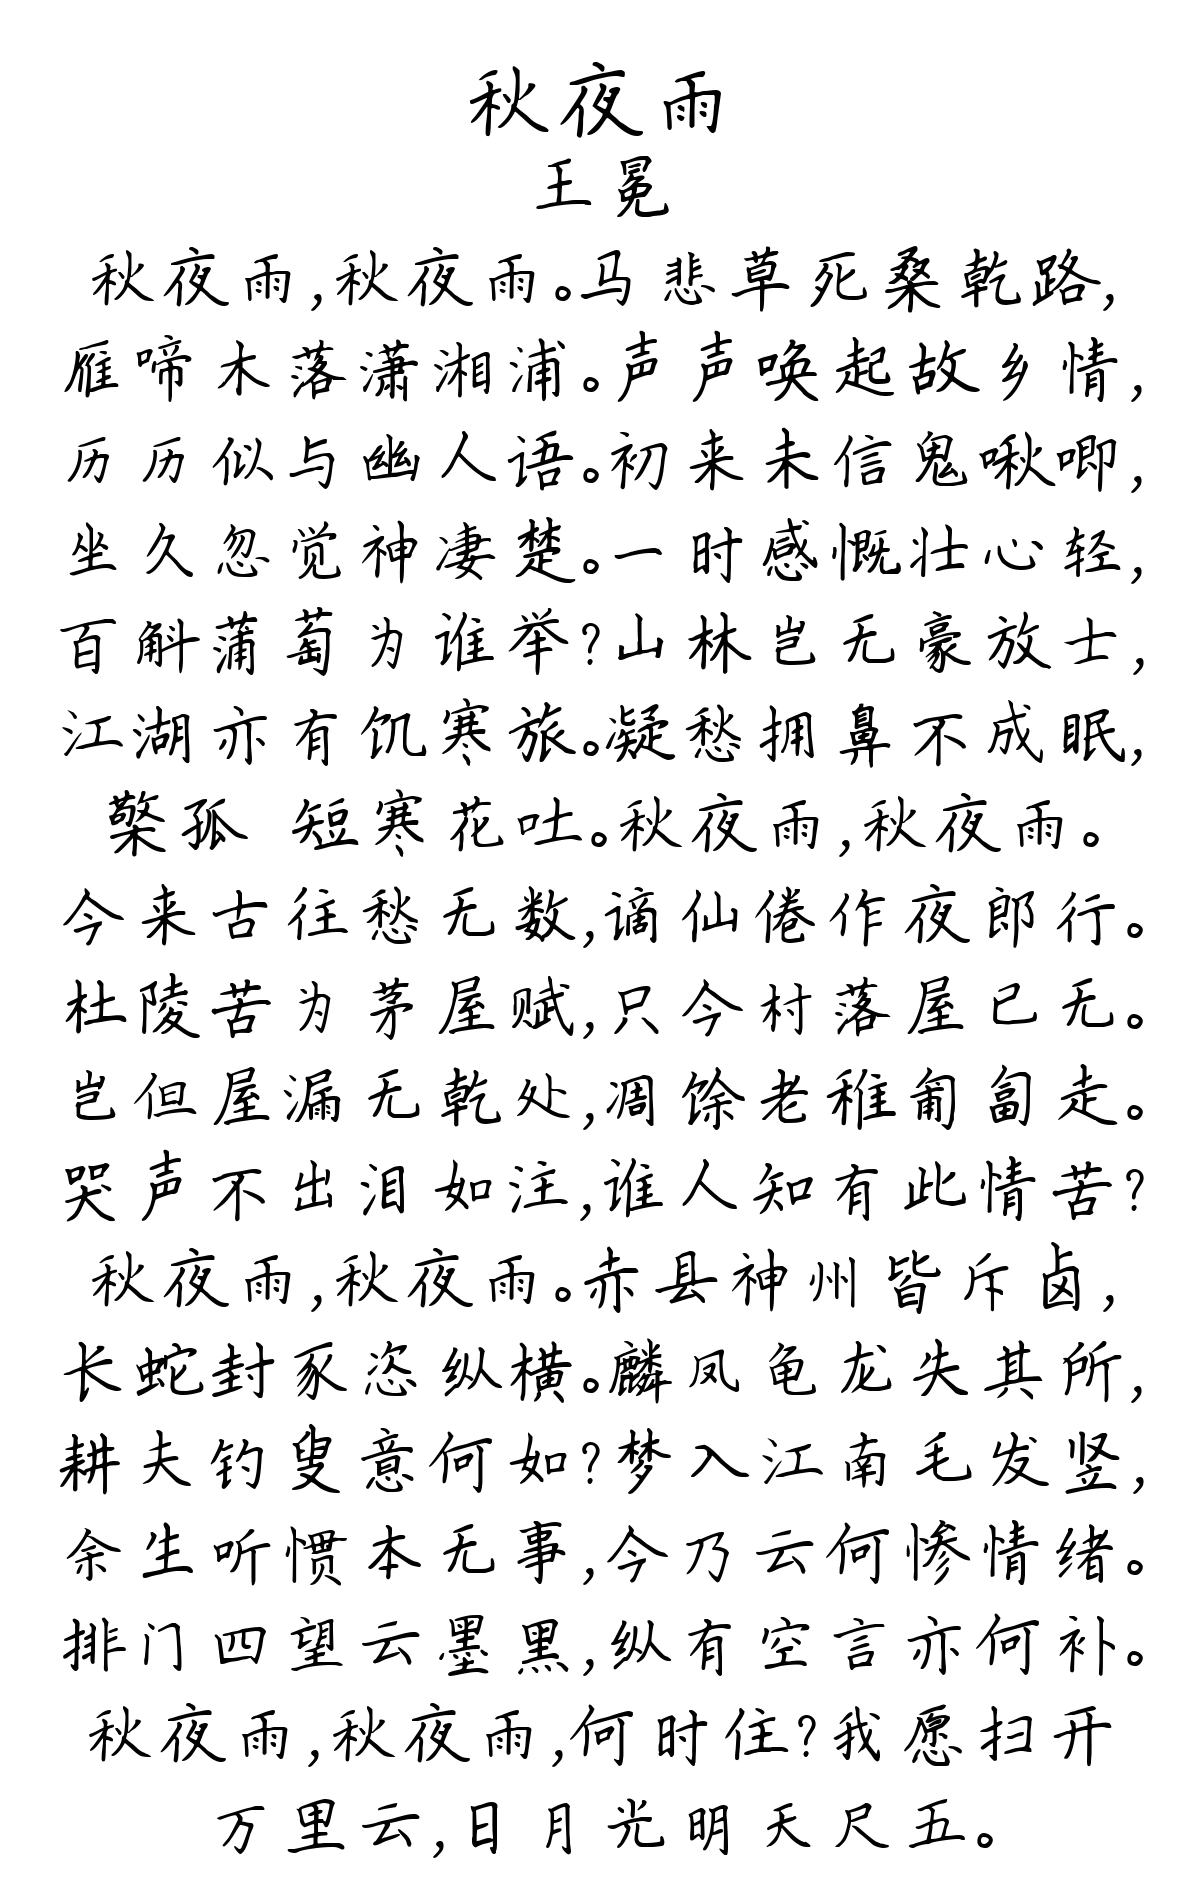 秋夜雨
王冕
秋夜雨,秋夜雨。马悲草死桑乾路,
雁啼木落潇湘浦。声声唤起故乡情,
历历似与幽人语。初来未信鬼啾唧,
坐久忽觉神凄楚。一时感慨壮心轻,
百斛蒲萄为谁举?山林岂无豪放士,
江湖亦有饥寒旅。凝愁拥鼻不成眠,
檠孤 短寒花吐。秋夜雨,秋夜雨。
今来古往愁无数,谪仙倦作夜郎行。
杜陵苦为茅屋赋,只今村落屋已无。
岂但屋漏无乾处,凋馀老稚匍匐走。
哭声不出泪如注,谁人知有此情苦?
秋夜雨,秋夜雨。赤县神州皆斥卤,
长蛇封豕恣纵横。麟凤龟龙失其所,
耕夫钓叟意何如?梦入江南毛发竖,
余生听惯本无事,今乃云何惨情绪。
排门四望云墨黑,纵有空言亦何补。
秋夜雨,秋夜雨,何时住?我愿扫开
万里云,日月光明天尺五。